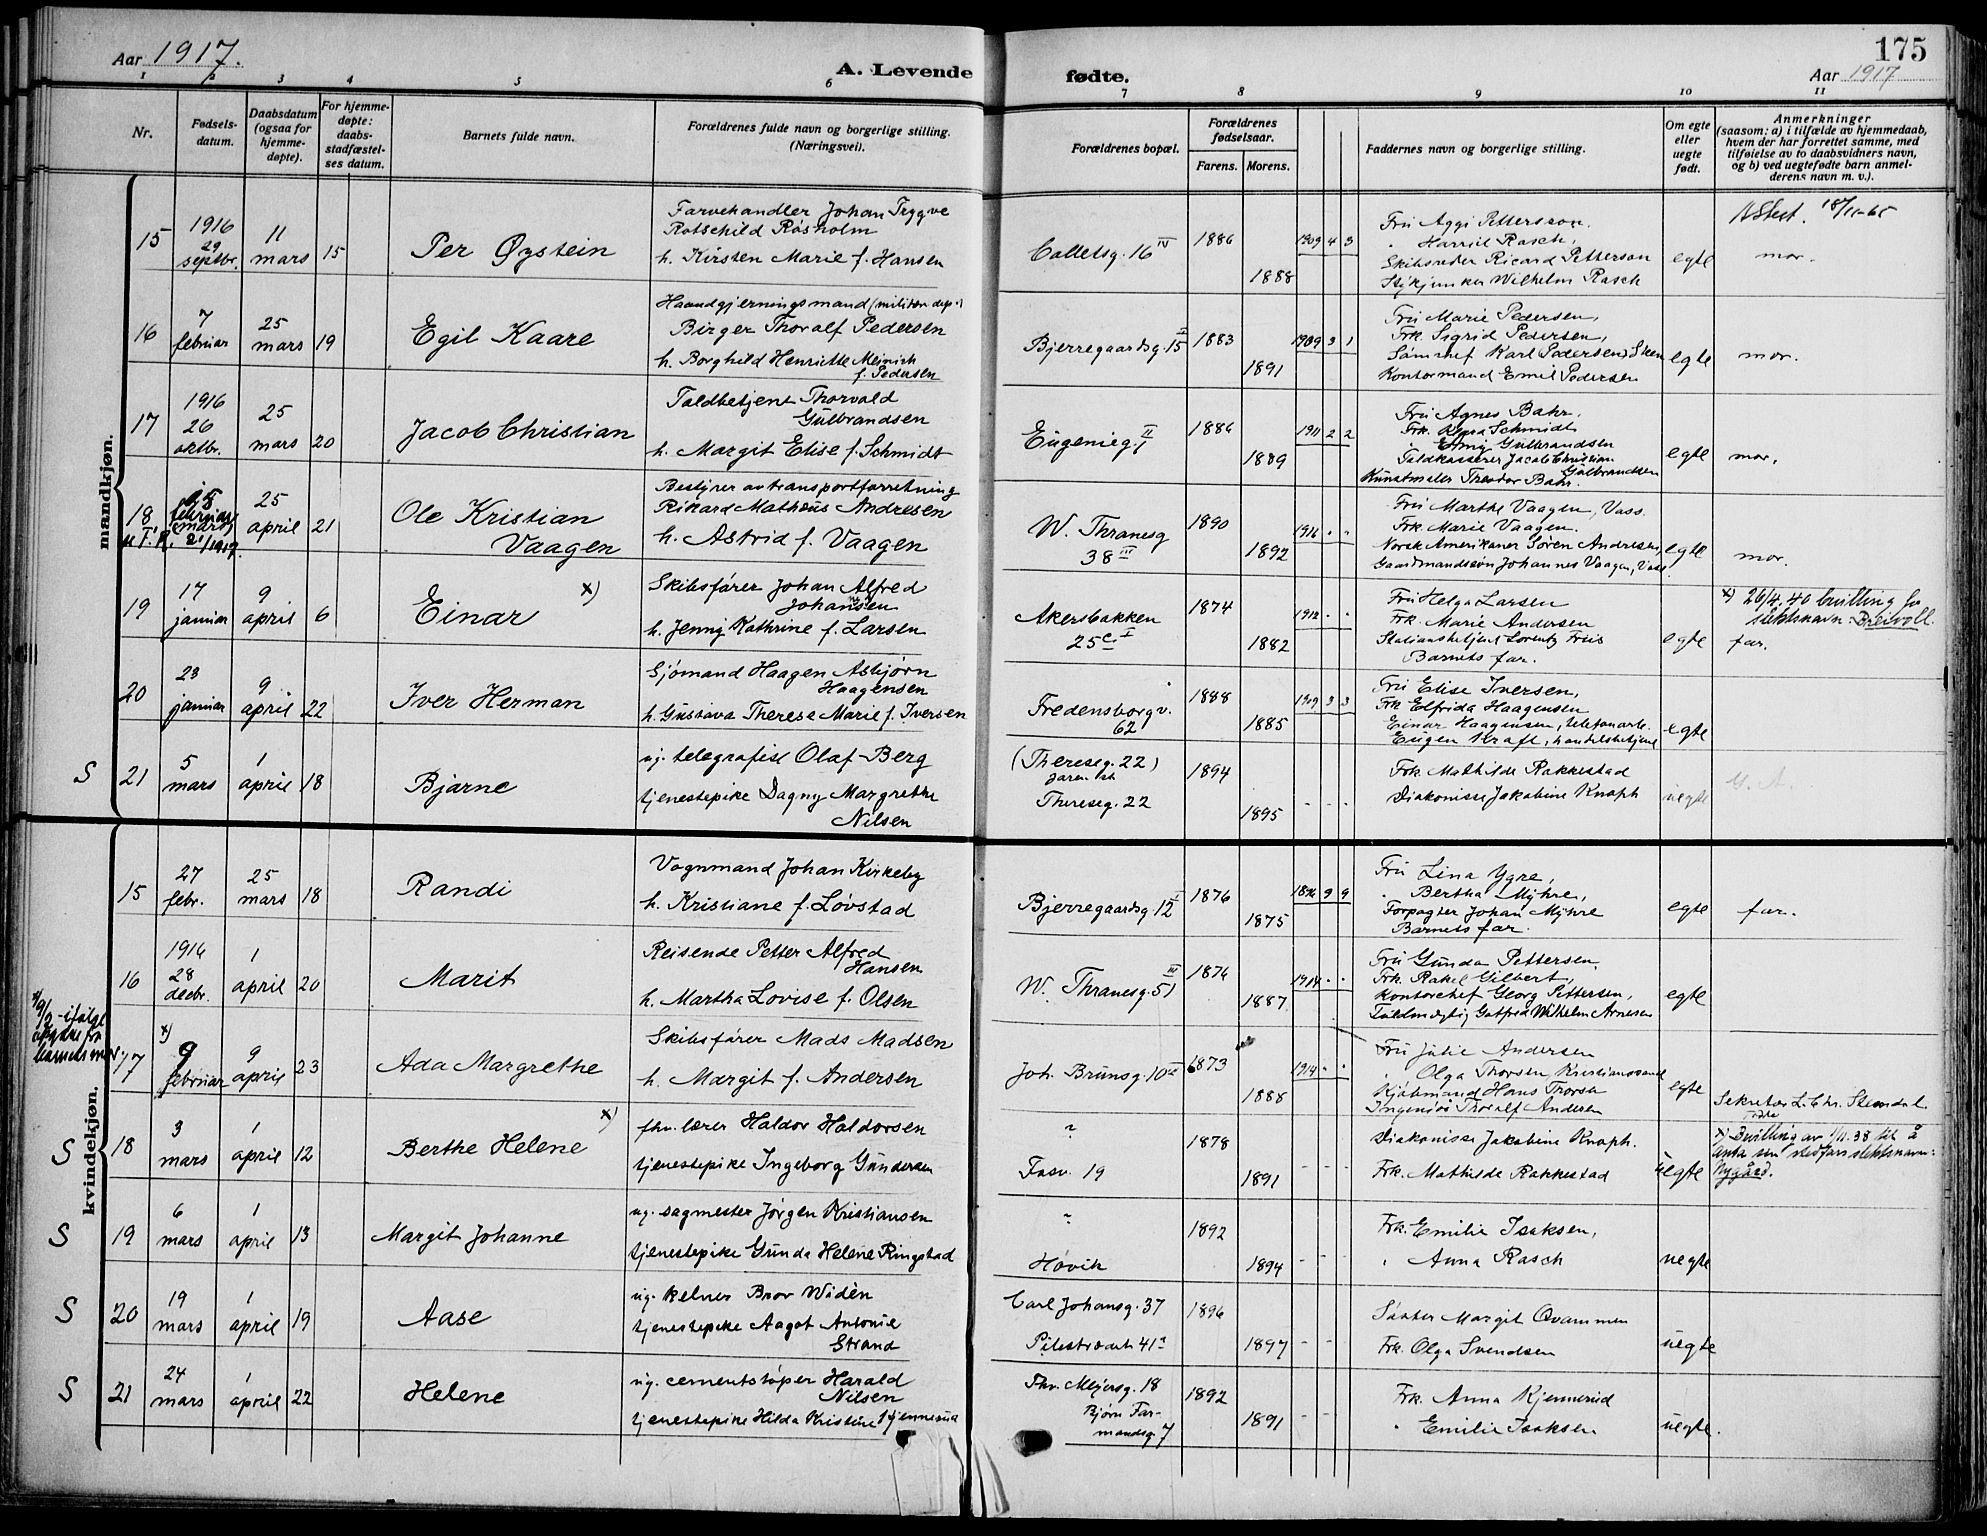 Aar 1917.
A. Levende fødte.
175
Aar 1917
1 2 3 4 5 6 7 8 9 10 11
Nr.
Fødsels-
datum.
Daabsdatum
(ogsaa for
hjemme-
døpte).
For hjemme-
døpte:
daabs-
stadfæstel-
ses datum.
Barnets fulde navn.
Forældrenes fulde navn og borgerlige stilling.
(Næringsvei).
Forældrenes bopæl.
Forældrenes
fødselsaar.
Farens. Morens.
Faddernes navn og borgerlige stilling.
Om egte
eller
uegte
født.
Anmerkninger
(saasom: a) i tilfælde av hjemmedaab,
hvem der har forrettet samme, med
tilføielse av to daabsvidners navn,
og b) ved uegtefødte barn anmel-
derens navn m. v.).
mandkjøn.
15
1916
29
septbr.
11
mars
15
Per Øystein
Farvehandler Johan Trygve
Rotschild Røsholm
h. Kirsten Marie f. Hansen
Colletsg. 16 IV
1886
1888
1909 4 3
Fru Aggi Pettersson.
" Harriet Rasch,
Skibsreder Ricard Petterson
Stykjunker Wilhelm Rasch
egte
Attest. 18/11-65
mor.
16
7
februar
25
mars
19
Egil Kaare
Haandgjerningsmand (militær dep.)
Birger Thoralf Pedersen
h. Borghild Henriette Meinich
f. Pedersen
Bjerregaardsg. 15 II
1883
1891
1909 3 1
Fru Marie Pedersen,
Frk. Sigrid Pedersen,
Karl Pedersen, Skien
Kontormand Emil Pedersen
egte
mor.
17
1916
26
oktbr.
25
mars
20
Jacob Christian
Toldbetjent Thorvald
Gulbrandsen
h. Margit Elise f. Schmidt
Eugenieg. 1 II
1886
1889
1911 2 2
Fru Agnes Bahr.
Frk. Kyra Schmidt
" Emy Gulbrandsen
Toldkasserer Jacob Christian
Gulbrandsen
Kunstmaler Theodor Bahr.
egte
mor.
18
25
februar
(mars)
21/1919.
25
april
21
Ole Kristian
Vaagen
Bestyrer av transportforretning
Rikard Matheus Andresen
h. Astrid f. Vaagen
W. Thranesg
38 III
1890
1892
1916 " "
Fru Marthe Vaagen, Vass.
Frk. Marie Vaagen.
Norsk Amerikaner Søren Andresen,
Gaardmandssøn Johannes Vaagen, Vass.
egte
mor.
19
17
januar
9
april
6
Einar x)
Skibsfører Johan Alfred
Johansen
h. Jenny Kathrine f. Larsen
Akersbakken
25 c I
1874
1882
1912 " "
Fru Helga Larsen
Frk. Marie Andersen
Stationsbetjent Lorentz Friis
Barnets far.
egte
x) 26/4.40 bevilling for
slektsnavn:
far.
20
23
januar
9
april
22
Iver Herman
Sjømand Haagen Asbjørn
Haagensen
h. Gustava Therese Marie f. Iversen
Fredensborgv.
62
1888
1885
1909 3 3
Fru Elise Iversen,
Frk Elfrida Haagensen
Einar Haagensen, telefonarb.
Eugen Kraft, handelsbetjent
egte
S 21
5
mars
1
april
18
Bjarne
ug. telegrafist Olaf Berg
tjenestepike Dagny Margrethe
Nilsen
(Thereseg. 22)
Jaren st
Thereseg. 22
1894
1895
- - -
Frk. Mathilde Rakkestad
Diakonisse Jakobine Knoph
uegte
G. A.
kvindekjøn.
15
27
febr.
25
mars
18
Randi
Vognmand Johan Kirkeby
h. Kristiane f. Løvstad
Bjerregaardsg. 12 I
1876
1875
1896 9 9
Fru Lina Ygre,
" Bertha Myhre,
Forpagter Johan Myhre
Barnets far.
egte
far.
16
1916
28
decbr.
1
april
20
Marit
Reisende Petter Alfred
Hansen
h. Martha Lovise f. Olsen
W. Thranesg. 51 III
1876
1887
1914 " "
Fru Gunda Pettersen.
Frk. Rakel Gilbert,
Kontorchef Georg Pettersen,
Toldmægtig Gotfred Wilhelm Arnesen
egte
ifølge
opgave fra
barnets mor.
17
x)
9
februar
9
april
23
Ada Margrethe
Skibsfører Mads Madsen
h. Margit f. Andersen
Joh. Brunsg. 10 III
1873
1888
1914 " "
Fru Julie Andersen
" Olga Thorsen Kristianssand
Kjøbmand Hans Thorsen
Ingeniør Thoralf Andersen
egte
S 18
3
mars
1
april
12
Berthe Helene x)
fhv. lærer Haldor Haldorsen
tjenestepike Ingeborg Gundersen
?
Fosv. 19
1878
1891
- - -
Diakonisse Jakobine Knoph.
Frk. Mathilde Rakkestad
uegte
Sekretær L. Chr. Stendal.
x) Bevilling av 1/11.38 til å
anta sin stedfars slektsnavn:
Nygård.
S 19
6
mars
1
april
13
Margit Johanne
ug. sagmester Jørgen Kristiansen
tjenestepike Gunda Helene Ringstad
?
Høvik
1892
1894
- - -
Frk. Emilie Isaksen,
" Anna Rasch
uegte
S 20
19
mars
1
april
19
Aase
ug. kelner Bror Widèn
tjenestepike Aagot Antonie
Strand
Carl Johansg. 37
Pilestrædet 41 a
1896
1897
- - -
Søster Margit Qvammen
Frk. Olga Svendsen
uegte
S 21
24
mars
1
april
22
Helene
ug. cementstøper Harald
Nilsen
tjenestepike Hilda Kristine Kjennerud
Thv. Meyersg. 18
Bjørn Far-
mandsg. 7
1892
1891
- -
Frk. Anna Kjennerud
" Emilie Isaksen
uegte.